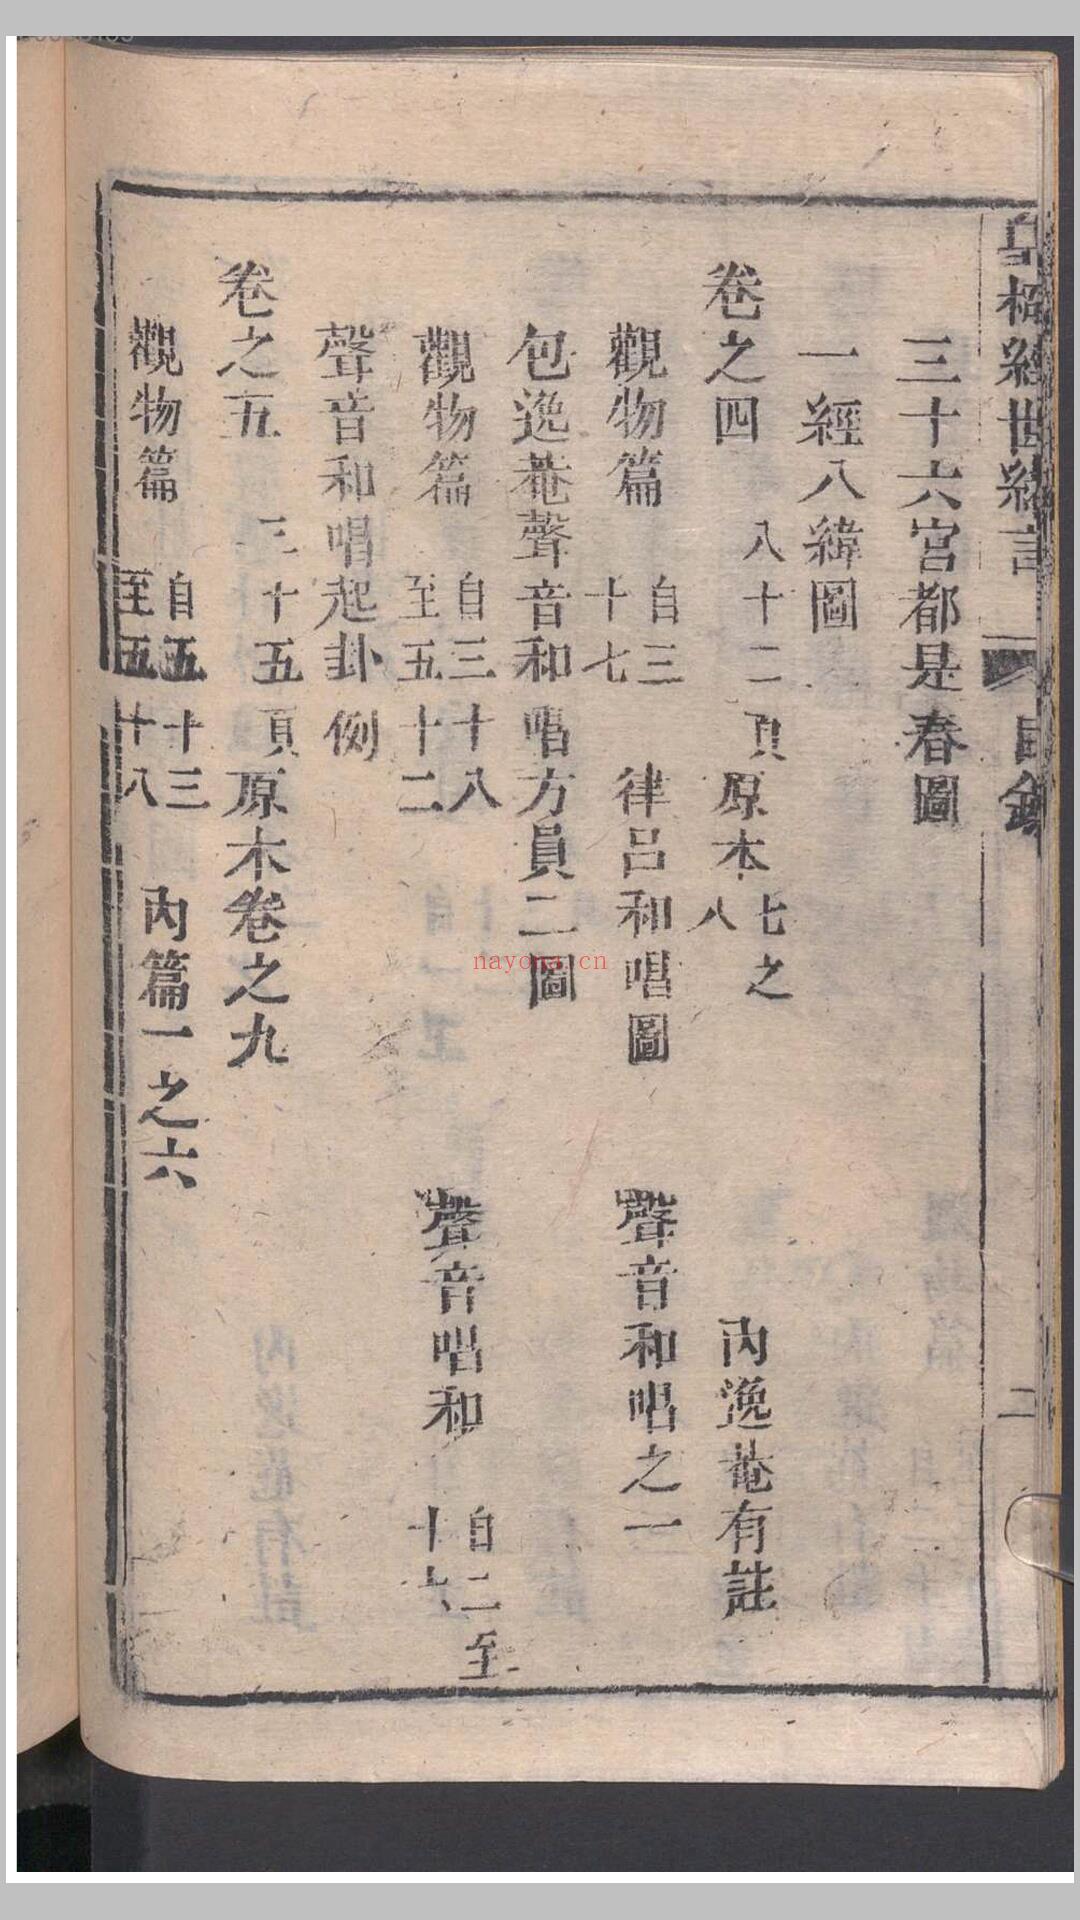 皇極經世緒言
目錄
二
三十六宮都是春圖
一經八緯圖
卷之四 八十二頁 原本七之八 內逸菴有註
觀物篇 自三十七 律呂和唱圖 聲音和唱之一
包逸菴聲音和唱方員二圖
觀物篇 自三十八至五十二 聲音唱和 自二至十六
聲音和唱起卦例
卷之五 三十五頁 原本卷之九
觀物篇 自五十三至五十八 內篇一之六
nayona.cn